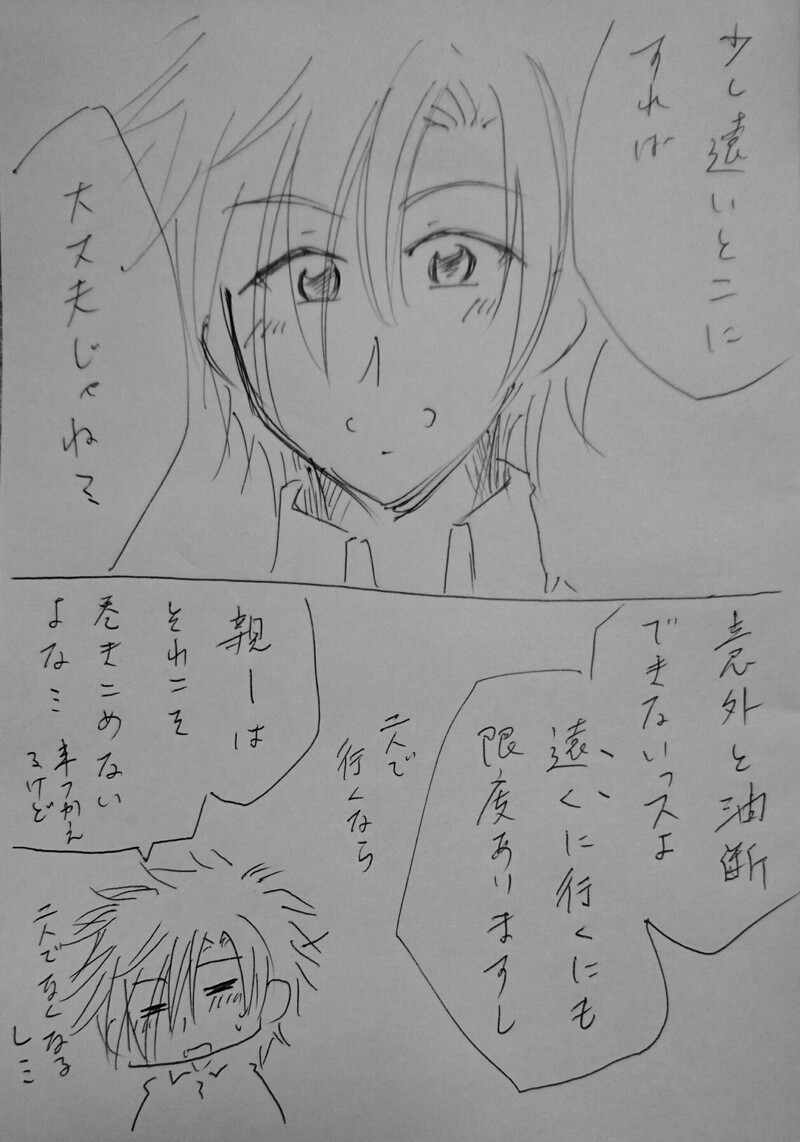 少し遠いとこに
すれば
大丈夫じゃねミ
意外と油断
できないっスよ
遠くに行くにも
限度ありますし
二人で
行くなら
親ーは
それこそ
巻きこめない
よなミ
車つかえ
るけど
二人でなくなる
しミ